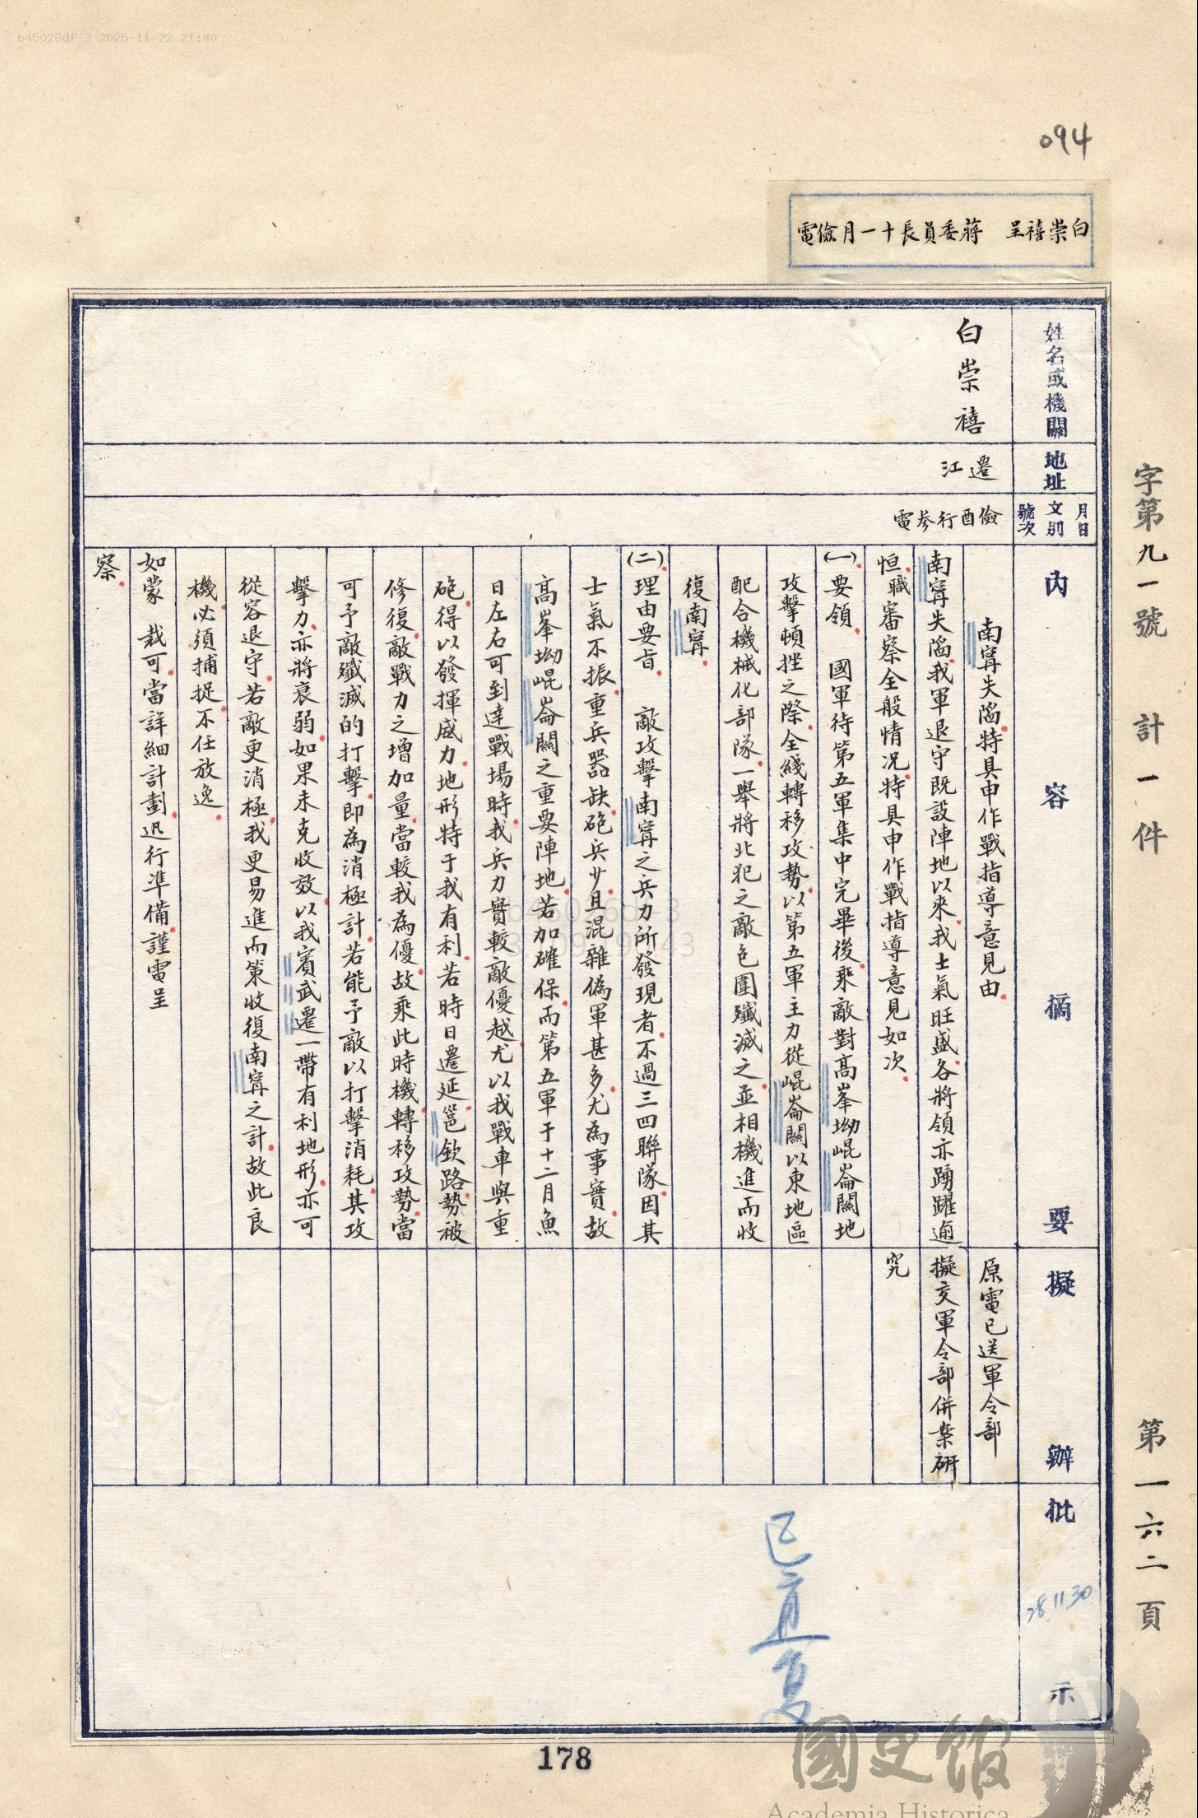 b45026df-3 2025-11-22 21:40
094
白崇禧呈　蔣委員長十一月儉電
字第九一號　計一件　第一六二頁
姓名或機關
白崇禧
地址
遷江
月日
文別
號次
儉酉行參電
內容摘要
南寧失陷特具申作戰指導意見由
南寧失陷我軍退守既設陣地以來我士氣旺盛各將領亦踴躍逾
恒職審察全般情况特具申作戰指導意見如次
㈠要領　國軍待第五軍集中完畢後乘敵對高峯坳崐崙關地
攻擊頓挫之際全綫轉移攻勢以第五軍主力從崐崙關以東地區
配合機械化部隊一舉將北犯之敵包圍殲滅之並相機進而收
復南寧
㈡理由要旨　敵攻擊南寧之兵力所發現者不過三四聯隊因其
士氣不振重兵器缺砲兵少且混雜偽軍甚多尤為事實故
高峯坳崐崙關之重要陣地若加確保而第五軍于十二月魚
日左右可到達戰場時我兵力實較敵優越尤以我戰車與重
砲得以發揮威力地形特于我有利若時日遷延邕欽路勢被
修復敵戰力之增加量當較我為優故乘此時機轉移攻勢當
可予敵殲滅的打擊即為消極計若能予敵以打擊消耗其攻
擊力亦將衰弱如果未克收效以我賓武遷一帶有利地形亦可
從容退守若敵更消極我更易進而策收復南寧之計故此良
機必須捕捉不任放逸
如蒙　裁可當詳細計劃迅行準備謹電呈
察
擬辦
原電已送軍令部
擬交軍令部併案研
究
批示
28.11.30
已直复
178
國史館
Academia Historica